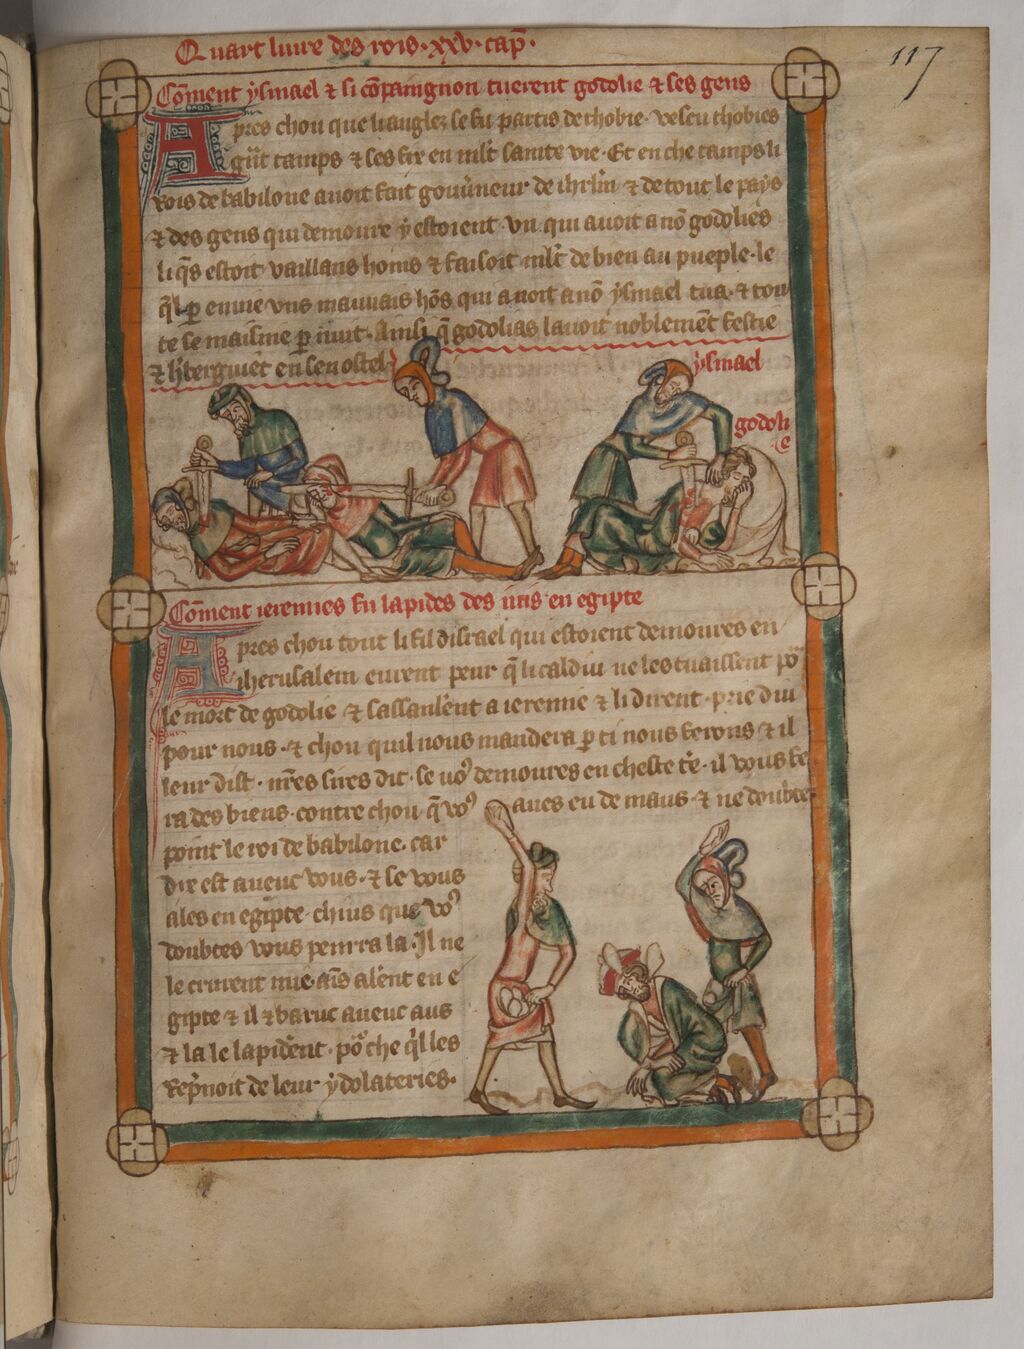 Quart liure des rois · xxv · cap̃ ·
117
Cõment ysmael ⁊ si cõpaingnon tuerent godolie ⁊ ses gens
Apres chou que li angles se fu partis de thobie · vescu thobies
⁊ ses fix en mlt̃ sainte vie · Et en che tamps li
rois de babilone auoit fait gouũneur de ihrlm̃ ⁊ de tout le pays
⁊ des gens qui demoure y estoient · vn · qui auoit a nõ godolies
li q̃s estoit vaillans homs ⁊ faisoit mlt̃ de bien au pueple · le
q̃l p enuie vns mauuais hõs qui auoit a nõ ysmael tua · ⁊ tou
te se maisnie p nuit · Ainsi q̃ godolias lauoit noblemẽt festie
⁊ en sen ostel
ysmael
godoli
e
Cõment ieremies fu lapides des iuis en egipte
Apres chou tout li fil disrael qui estoient demoures en
iherusalem eurent peur q̃ li caldiu ne les tuaissent põ
le mort de godolie ⁊ sassanlẽt a ieremie ⁊ li dirent · prie diu
pour nous · ⁊ chou quil nous mandera p ti nous ferons ⁊ il
leur dist · sires dit · se uo᾽ demoures en cheste tẽ · il vous fe
ra des biens · contre chou q̃ vo᾽ aues eu de maus · ⁊ ne doubtes
point le roi de babilone · car
dix est auenc vous · ⁊ se vous
ales en egipte · chius que vo᾽
doubtes vous penrra la · Il ne
le crurent mie · ains alẽt en e
gipte ⁊ il ⁊ baruc auenc aus
⁊ la le lapidẽnt · põ che q̃l les
rep̃noit de leur ydolateries ·